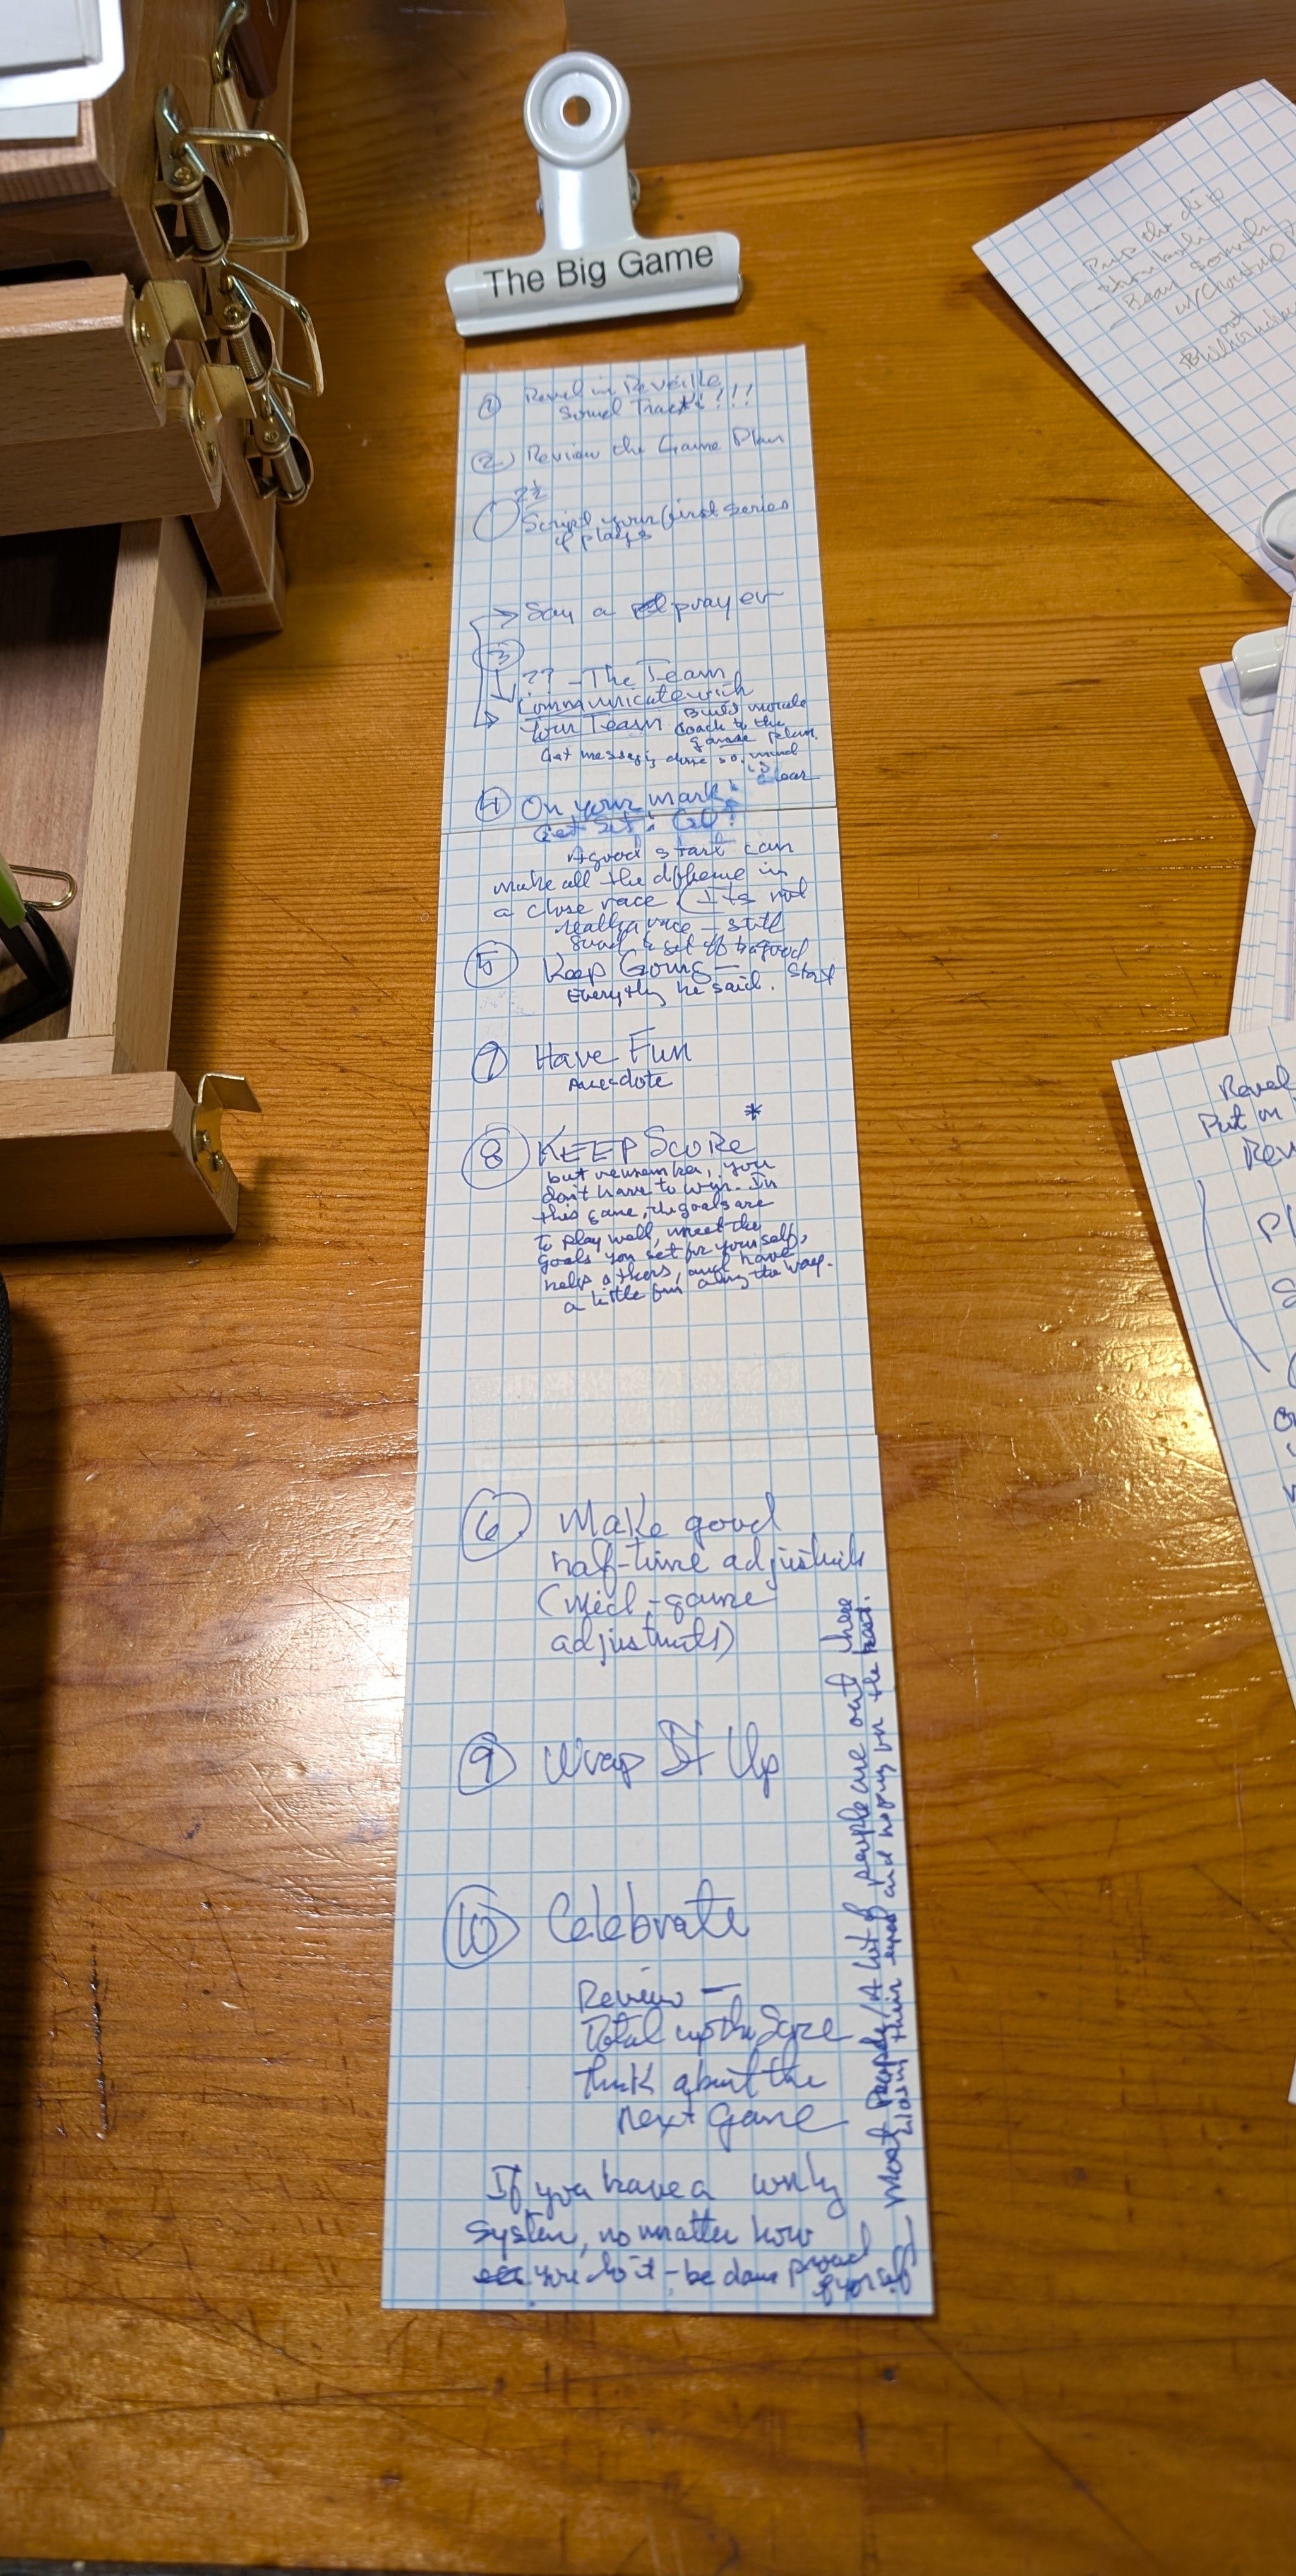 The Big Game
① Revel in Reveille
Sound Tracks!!!
② Review the Game Plan
2½
Script your first series
of plays
Say a prayer
③
?? - The Team
Communicate with
Your Team Build morale
Coach to the
game plan.
Get messages done so mind
is clear
④ On your mark!
Get Set! Go!
A good start can
make all the difference in
a close race (Its not
really a race - still
good to set off to a good
start
⑤ Keep Going -
Everything he said.
⑦ Have Fun
Anecdote
*
⑧ KEEP SCORE
but remember, you
don't have to win. In
this game, the goals are
to play well, meet the
goals you set for yourself,
help others, and have
a little fun along the way.
⑥ Make good
half-time
(mid-game
⑨ Wrap It Up
⑩ Celebrate
Review -
Total up the Score
Think about the
next game
If you have a
system, no matter how
you do it - be proud
of yourself
Most people / A lot of people are out there
closing their eyes and hoping for the best.
Prep the
w/Christine
Revel
Put on
Rev